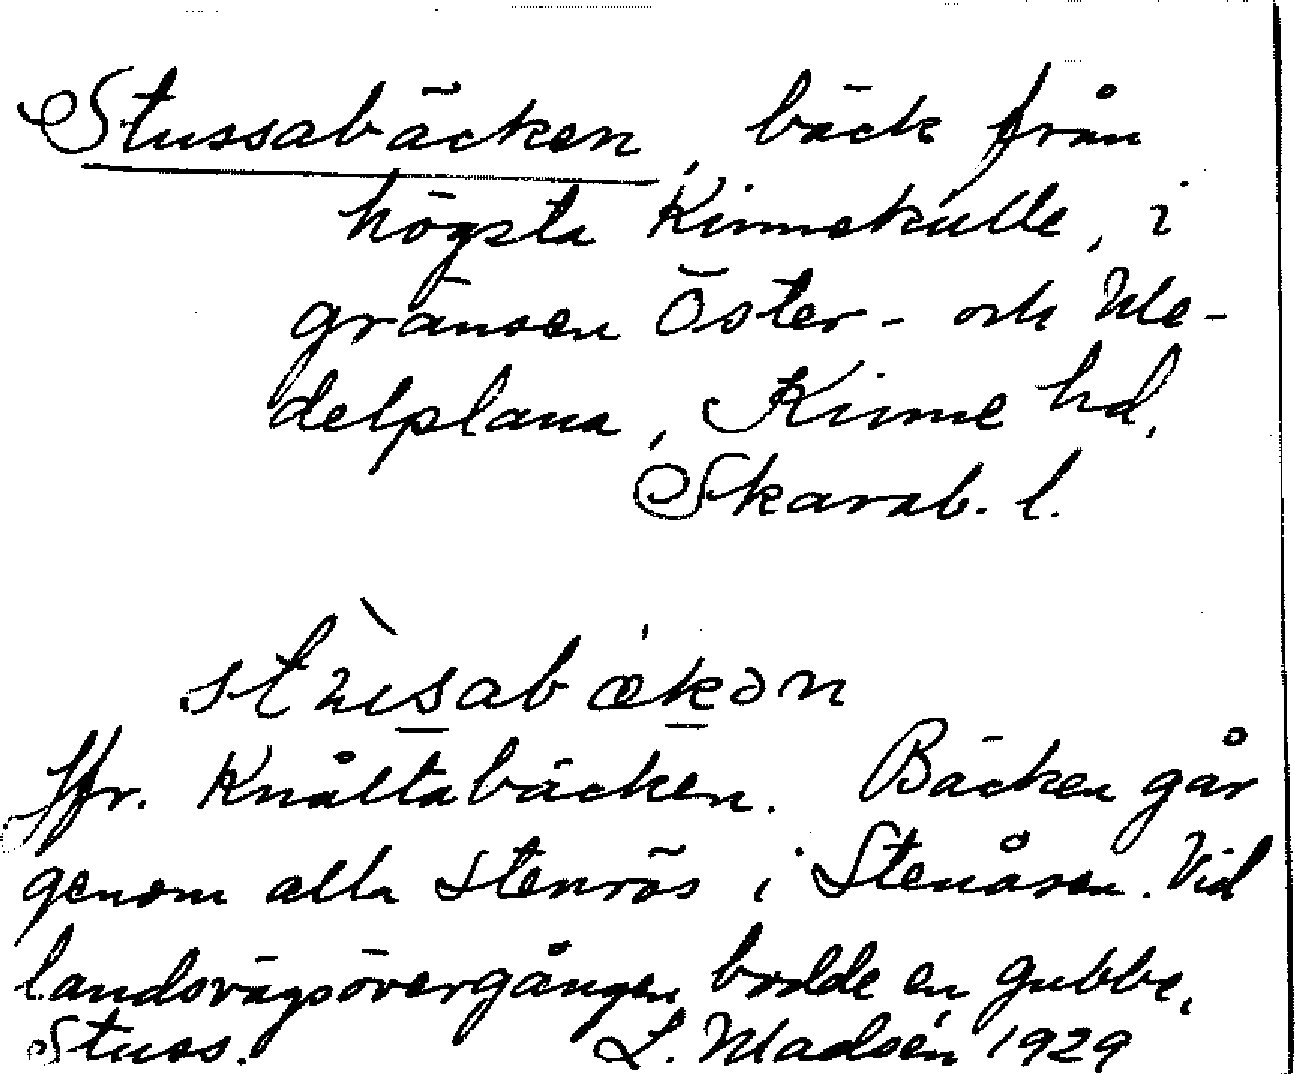 Stussabäcken, bäck från
högsta Kinnekulle, i
gränsen Öster- och Me-
delplana, Kinne hd,
Skarab. l.
stùsabækən
Jfr. Knåltabäcken. Bäcken går
genom alla stenrös i Stenåsen. Vid
landsvägsövergången bodde en gubbe,
Stuss. L. Madsén 1929